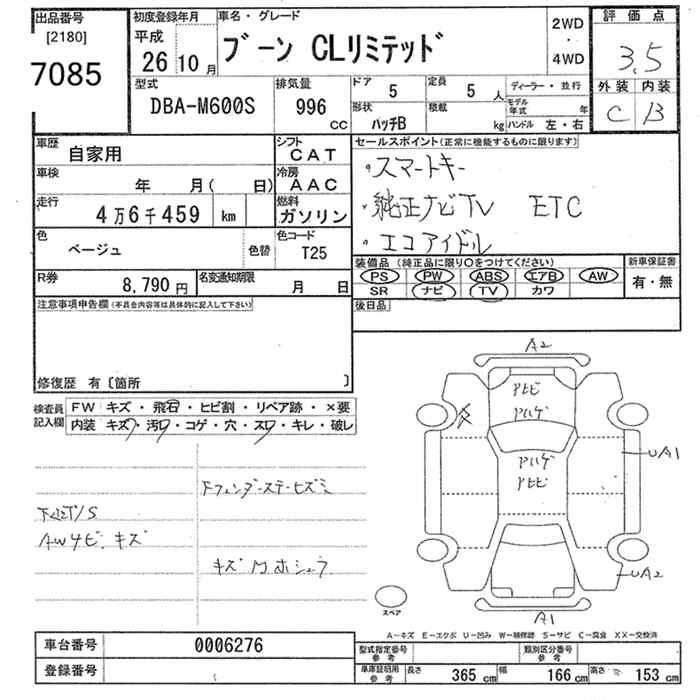 出品番号
[2180]
7085
初度登録年月
平成
26 10 月
車名・グレード
ブーン CLリミテッド
2WD
・
4WD
評価点
3.5
外装 内装
C B
型式
DBA-M600S
排気量
996
CC
ドア 5
定員 5 人
形状
ハッチB
積載
kg
ディーラー・並行
モデル年式 年
ハンドル 左・右
車歴
自家用
シフト
CAT
車検
年 月( 日)
冷房
AAC
走行
4万6千459 km
燃料
ガソリン
色
ベージュ
色替
色コード
T25
R券
8,790 円
名変通知期限
月 日
セールスポイント(正常に機能するものに限ります)
・スマートキー
・純正ナビTV ETC
・エコアイドル
装備品(純正品に限り○をつけてください)
PS PW ABS エアB AW
SR ナビ TV カワ
新車保証書
有・無
後日品
注意事項申告欄(本員会内容等は具体的に記入して下さい)
修復歴 有〔箇所 〕
検査員記入欄
FW キズ・飛石・ヒビ割・リペア跡・×要
内装 キズ・汚レ・コゲ・穴・スレ・キレ・破レ
AWサビ、キズ
A2
アトビ
アハゲ
アハゲ
アトビ
UA1
UA2
A1
スペア
A-キズ E-エクボ U-凹み W-補修跡 S-サビ C-腐食 XX-交換済
車台番号
0006276
登録番号
型式指定番号
参考
類別区分番号
参考
車庫証明用
参考
長さ 365 cm 幅 166 cm 高さ 153 cm